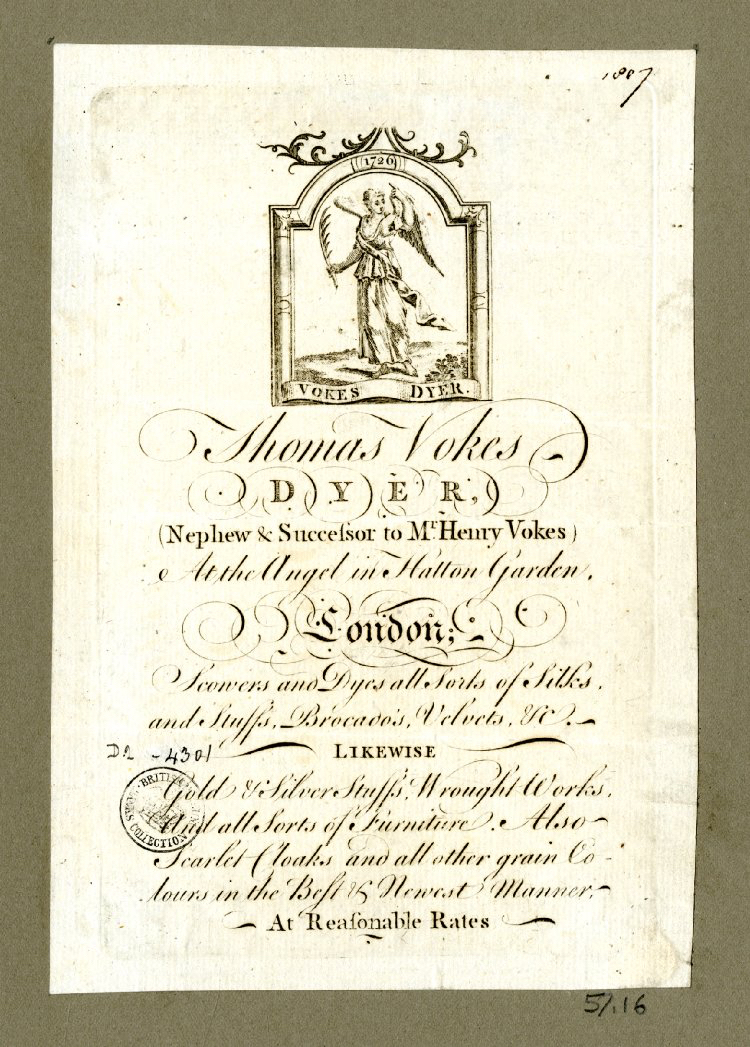 1887
1720
VOKES DYER.
Thomas Vokes
DYER,
(Nephew & Succeſsor to Mr. Henry Vokes)
At the Angel in Hatton Garden,
London;
Scowers and Dyes all Sorts of Silks,
and Stuffs, Brocado's, Velvets, &c.
LIKEWISE
Gold & Silver Stuffs, Wrought Works,
And all Sorts of Furniture. Also
Scarlet Cloaks and all other grain Co-
lours in the Beſt & Newest Manner,
At Reaſonable Rates
D,2 - 4301
BRITISH
COLLECTION
51.16